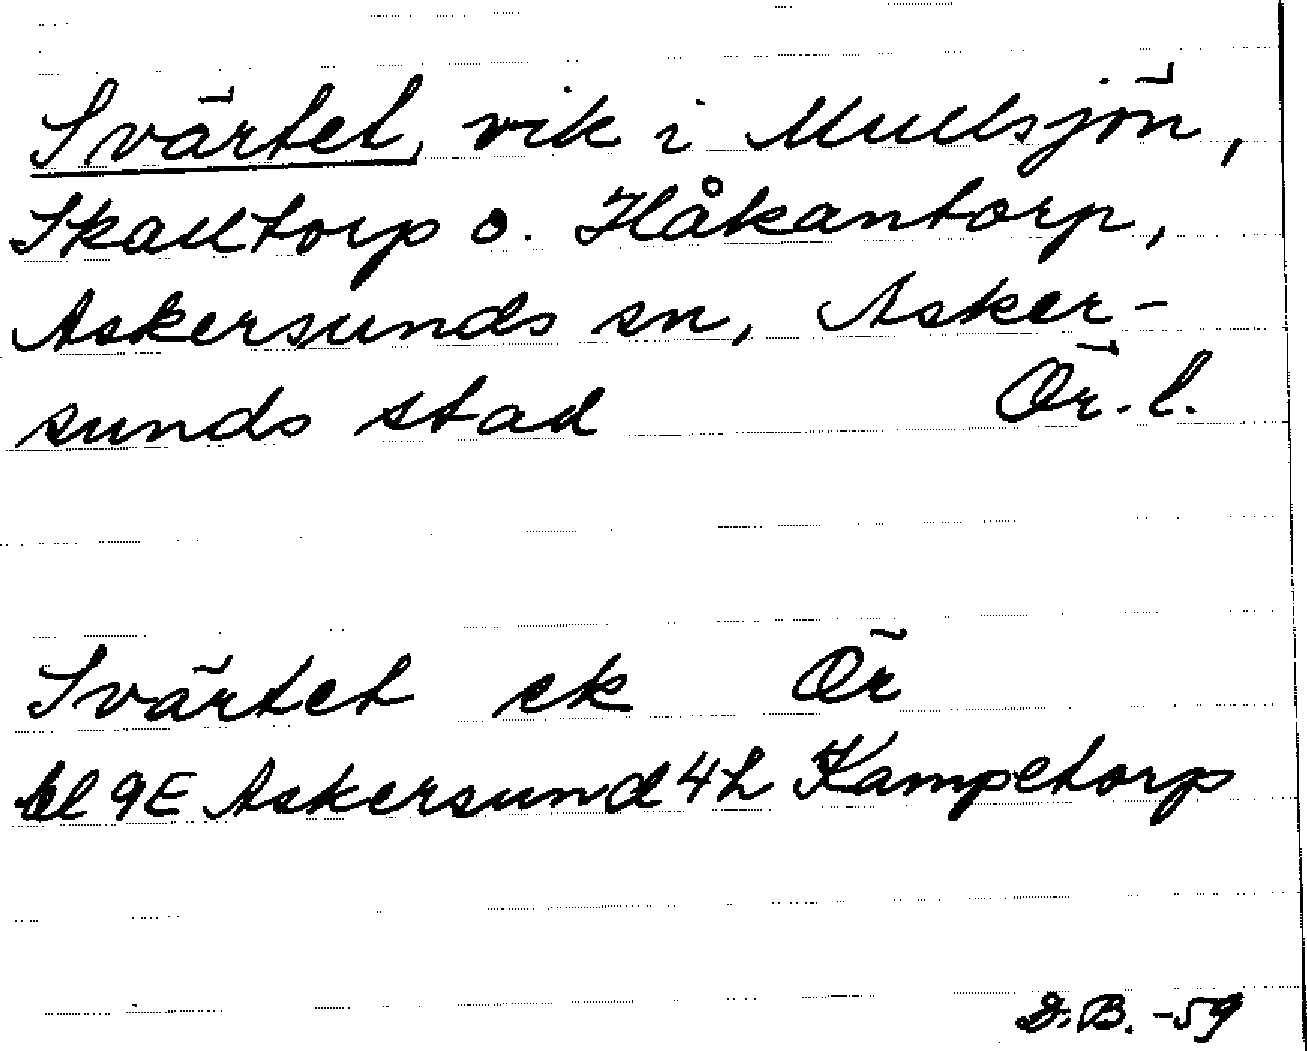 Svärtet, vik i Mullsjön,
Skalltorp o. Håkantorp,
Askersunds sn, Asker-
sunds stad Ör. l.
Svärtet ek Ör
bl 9E Askersund 4h Kampetorp
D.B. -59